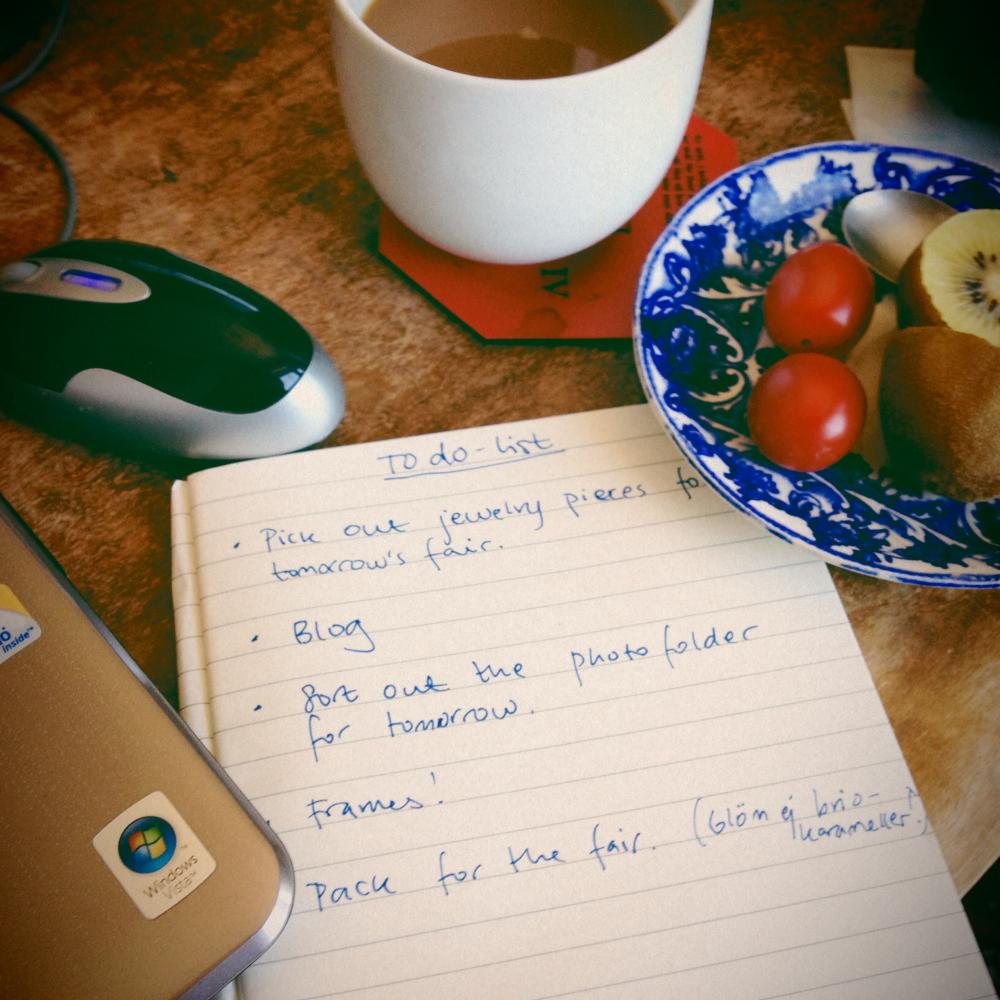 To do-list
• Pick out jewelry pieces fo
tomorrow's fair.
• Blog
• Sort out the photofolder
for tomorrow.
• Frames!
Pack for the fair. (Glöm ej brio-
karameller!)
inside™
Windows
Vista™
IV